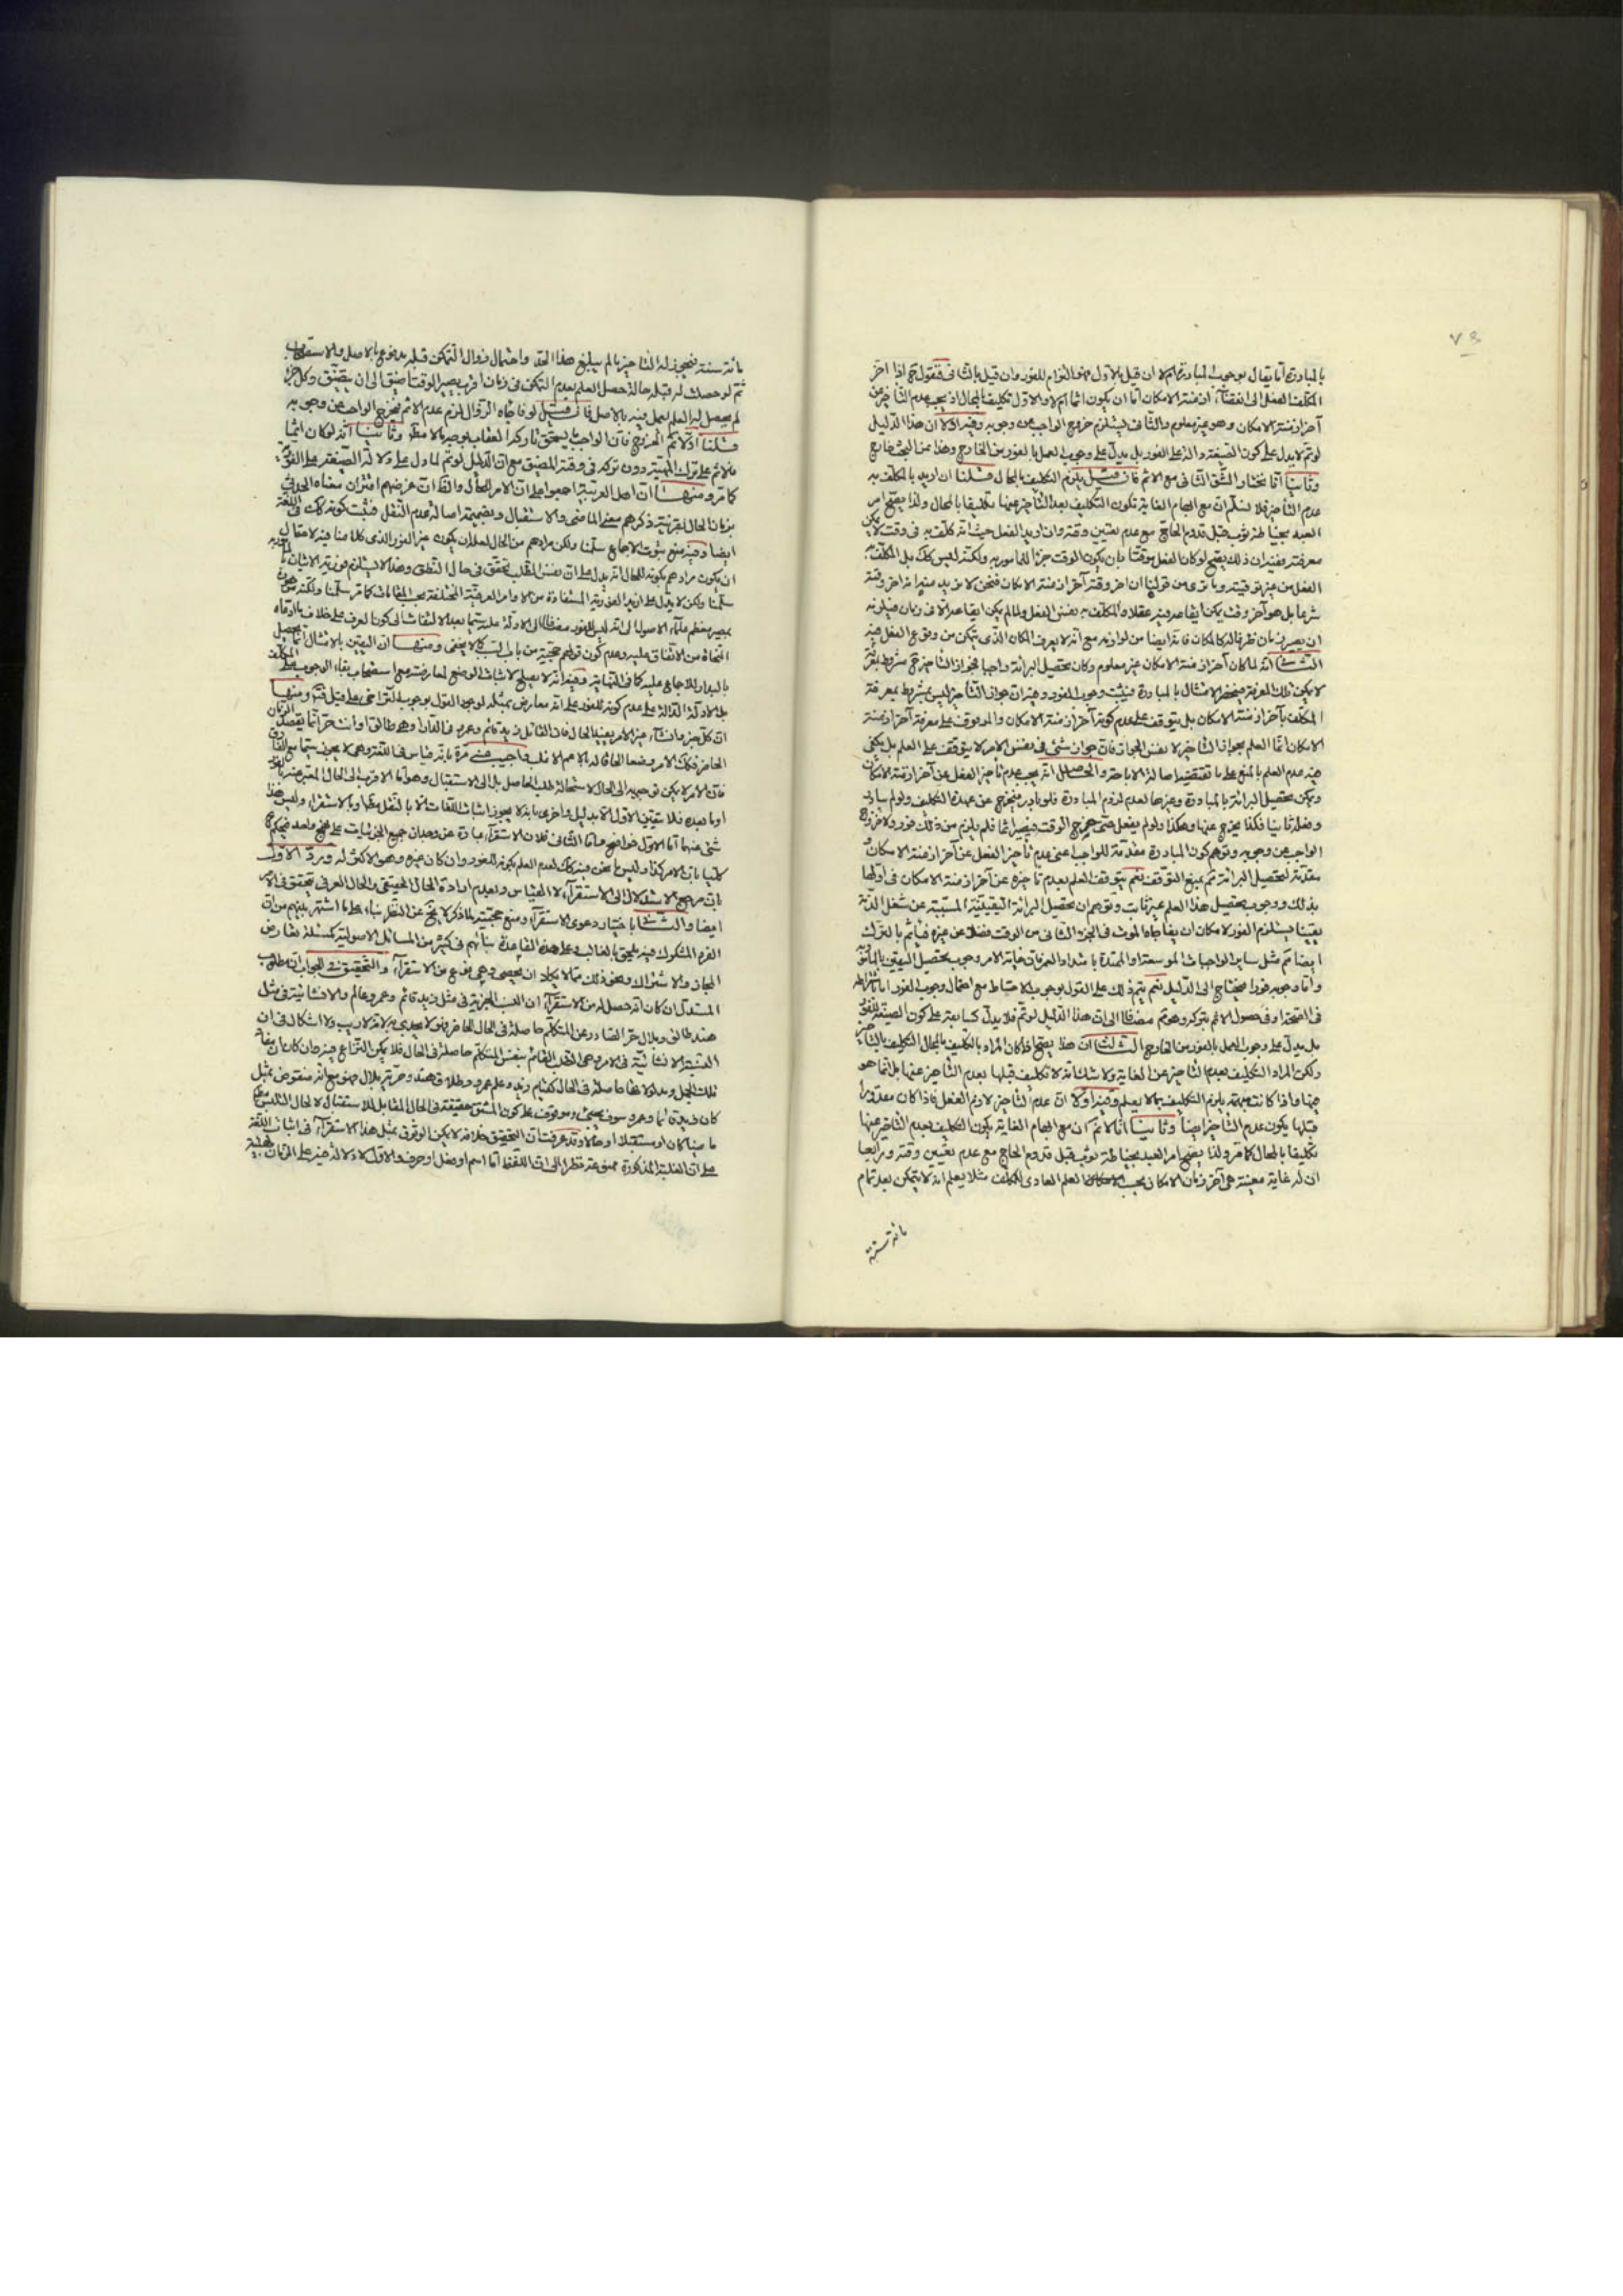 ٧٣
بالمبادرة اما يقال بوجوب المبادرة ام لا ان قيل بالاول فهو التوام للفور وان قيل بالثانى فنقول ح اذا اخر
المكلف الفعل الى انقضاء ازمنة الامكان اما ان يكون اثما ام لا والاول تكليف بالمحال اذ يجب عدم التاخير عن
آخر ازمنة الامكان وهو غير معلوم والثانى فيستلزم خروج الواجب عن وجوبه وفيه اولا ان هذا الدليل
لوتم لا يدل على كون الصيغة دالة على الفور بل يدل على وجوب العمل بالفور من الخارج وهذا من البحث خارج
وثانيا انا نختار الشق الثانى مع الاثم فان قيل يلزم التكليف بالمحال قلنا ان اريد بالمكلف به
عدم التاخير فلا نسلم ان مع ابهام الغاية تكون التكليف بعدم التاخير عنها تكليفا بالمحال ولذا يصح امر
العبد بخياطة ثوب قبل قدوم الحاج مع عدم تعيين وقته وان اريد الفعل حيث انه كلف به فى وقت لا يمكن
معرفته ففيه ان ذلك يصح لو كان الفعل موقتا بان يكون الوقت جزأ للمامور به ولكنه ليس كذلك بل المكلف به
الفعل من غير توقيته وما ترى من قولنا ان اخر وقته آخر ازمنة الامكان فنحن لا نريد منه انه اخر وقته
شرعا بل هو آخر وقت يمكن ايقاعه فيه عقلا والمكلف به نفس الفعل ولما لم يكن ايقاعه الا فى زمان
ان يصير زمان ظرفا له كالمكان فانه ايضا من لوازمه مع انه لا يعرف المكان الذى يتمكن من وقوع الفعل فيه
الثانى انه لما كان آخر ازمنة الامكان غير معلوم وكان تحصيل البرائة واجبا فجواز التاخير ح مشروط بمعرفة
لا يمكن تلك المعرفة فينحصر الامتثال بالمبادرة فيثبت وجوب الفور وفيه ان جواز التاخير ليس بمشروط بمعرفة
المكلف بآخر ازمنة الامكان بل يتوقف على عدم كونه آخر ازمنة الامكان والموقوف على معرفة آخر ازمنة
الامكان انما العلم بجواز التاخير لا نفس الجواز فان جواز شئ فى نفس الامر لا يتوقف على العلم بل يكفى
فيه عدم العلم بالمنع على ما تقتضيه اصالة الاباحة والحاصل انه يجب عدم تاخير الفعل عن آخر ازمنة الامكان
ويمكن تحصيل البرائة بالمبادرة وغيرها لعدم لزوم المبادرة فلو بادر فيخرج عن عهدة التكليف ولو لم يبادر
وفعله ثانيا فكذا يخرج عنها وهكذا ولو لم يفعل حتى خرج الوقت فيصير اثما فلم يلزم من ذلك فور ولا خروج
الواجب عن وجوبه وتوهم كون المبادرة مقدمة للواجب اعنى عدم تاخير الفعل عن آخر ازمنة الامكان
مقدمة لتحصيل البرائة ثم يمنع التوقف نعم يتوقف العلم بعدم تاخيره عن آخر ازمنة الامكان فى اولها
بذلك ووجوب تحصيل هذا العلم غير ثابت وتوهم ان تحصيل البرائة اليقينية المسببة عن شغل الذمة
يقينا يستلزم الفور لامكان ان يفاجاه الموت فى الجزء الثانى من الوقت فضلا عن غيره فياثم بالترك
ايضا ثم مثل ساير الواجبات الموسعة او الممتدة بامتداد العمر فان غاية الامر وجوب تحصيل اليقين بالماتى به
واما وجوبه فورا فيحتاج الى الدليل نعم يتم ذلك على القول بوجوب الاحتياط مع احتمال وجوب الفور اما
فى الصحة او فى حصول الاثم بتركه وهو ثم مضافا الى ان هذا الدليل لو تم فلا يدل كسابقه على كون الصيغة للفور
بل يدل على وجوب العمل بالفور من الخارج الثالث ان هذا يصح اذا كان المراد بالتكليف بالمحال التكليف بالتاخير
ولكن المراد التكليف بعدم التاخير عن الغاية ولا شك انه لا تكليف قبلها بعدم التاخير عنها بل انما هو
فيها واذا كانت مبهمة يلزم التكليف بما لا يعلم وفيه اولا ان عدم التاخير لازم الفعل فاذا كان مقدورا
قبلها يكون عدم التاخير ايضا وثانيا انا لا نم ان مع ابهام الغاية يكون التكليف بعدم التاخير عنها
تكليفا بالمحال كما مر ولذا يصح امر العبد بخياطة ثوب قبل قدوم الحاج مع عدم تعيين وقته ورابعا
ان له غاية معينة هى آخر زمان الامكان بحسب العلم العادى للمكلف مثلا يعلم انه لا يتمكن بعد تمام
مائة سنة
مائة سنة فيجوز له التاخير ما لم يبلغ هذا الحد واحتمال زوال التمكن قبله مدفوع بالاصل والاستصحاب
ثم لو حصلت له قبله حالة حصل العلم بعدم التمكن فى زمان اقرب يصير الوقت اضيق الى ان يتضيق وكل
لم يحصل له العلم يعمل فيه بالاصل فان قيل لو فاجاه الزوال لزم عدم الاثم فيخرج الواجب عن وجوبه
قلنا اولا نم الخروج فان الواجب ما يستحق تاركه العقاب وثانيا انه لو كان اثما
فلاثم على ترك دون تركه فى وقته المضيق مع ان الدليل لو تم لما دل على دلالة الصيغة على الفورية
كما مر ومنها ان اهل العربية اجمعوا على ان الامر للحال والظاهر ان غرضهم اقتران معناه الحدثى
بزمان الحال بقرينة ذكرهم معنى الماضى والاستقبال وبضميمة اصالة عدم النقل فيثبت كونه كذلك فى اللغة
ايضا وفيه منع ثبوت الاجماع سلمنا ولكن مرادهم من الحال لعله ان يكون غير الفور الذى كلامنا فيه لاحتمال
ان يكون مرادهم بكونه للحال انه يدل على ان نفس الطلب تحقق فى حال النطق وهذا لا يستلزم فورية الاتيان بالمامور به
سلمنا ولكن لا يدل على ازيد الفورية المستفادة من الاوامر العرفية المختلفة بحسب المقامات كما مر سلمنا ولكنه
بمصير معظم علماء الاصول الى انه ليس للفور مضافا الى الادلة عليه سيما بعد الالتفات الى كون العرف على خلاف ما ادعاه
النحاة من الاتفاق عليه وعدم كون قولهم حجة من باب كما لا يخفى ومنها ان اليقين بالامتثال انما يحصل
بالبدار للاجماع عليه كما فى النهاية وفيه انه لا يصلح لاثبات الوضع لمعارضته مع استصحاب بقاء الوجوب على المكلف
والادلة الدالة على عدم كونه للفور على انه معارض بمثله لوجود القول بوجوب التراخى على ما قيل فتم ومنها
ان كل خبر وانشاء غير الامر يفيد الحال فان القائل زيد قائم وعمرو فى الدار او هى طالق او انت حر انما يقصد الزمان
الحاضر فكذلك الامر وضعا الحاقا له بالاعم الاغلب واجيب عنه مرة بانه قياس فى اللغة وهى لا يجوز سيما مع الفارق
فان الامر لا يمكن توجيهه الى الحال لاستحالة طلب الحاصل بل الى الاستقبال وهو اما الاقرب الى الحال المعبر عنه بالفور
او ما بعده فلا يتعين الاول الا بدليل واخرى بانه لا يجوز اثبات اللغات الا بالنقل عنها او بالاستقراء وليس هذا
شئ منهما اما الاول فواضح واما الثانى فلان الاستقراء عبارة عن وجدان جميع الجزئيات على نهج واحد فيحكم
كليا بان الامر كذا وليس ما نحن فيه كذلك لعدم العلم بكونه للفور وان كان غيره وهو الاكثر له ورد الاول
بان مرجع الاستدلال الى الاستقراء لا القياس وبعدم ارادة الحال الحقيقى والحال العرفى يتحقق فى الامر
ايضا والثانى باختيار دعوى الاستقراء ومنع حجيته بما ذكر لا يخ عن النظر بناء على ما اشتهر بينهم من ان
الفرد المشكوك فيه يلحق بالغالب وعلى هذه القاعدة بنائهم فى كثير من المسائل الاصولية كمسئلة تعارض
المجاز والاشتراك ونحو ذلك مما لا يكاد ان يحصى وهى نوع من الاستقراء والتحقيق فى الجواب ان مطلوب
المستدل ان كان انه حصل له من الاستقراء ان النسب الخبرية فى مثل زيد قائم وعمرو عالم والانشائية فى مثل
هند طالق وبلال حر الصادر عن المتكلم حاصلة فى الحال الحاضر فهو لا يجدى به لانه لا ريب ولا اشكال فى ان
النسبة الانشائية فى الامر وهى الطلب القائم بنفس المتكلم حاصلة فى الحال فلا يمكن النزاع فيه وان كان ان مفاد
تلك الجمل ومدلولاتها حاصلة فى الحال كقيام زيد وعلم عمرو وطلاق هند وحرية بلال فهو مع انه منقوض بمثل
كان زيد قائما وعمرو سوف يجيئ وموقوف على كون المشتق حقيقة فى الحال المقابل للاستقبال لا لحال التلبس
ماضيا كان او مستقبلا او حالا وقد عرفت ان التحقيق خلافه لا يمكن الوثوق بمثل هذا الاستقراء فى اثبات اللغة
على ان الغلبة المذكورة ممنوعة نظرا الى ان اللفظ اما اسم او فعل او حرف والاول لا دلالة فيه على الزمان